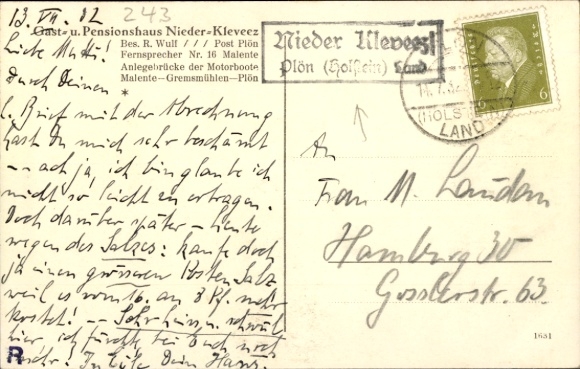 13. VII. 32
243
Gast- u. Pensionshaus Nieder-Kleveez
Bes. R. Wulf /// Post Plön
Fernsprecher Nr. 16 Malente
Anlegebrücke der Motorboote
Malente—Gremsmühlen—Plön
*
Liebe Mutti!
Durch Deinen
l. Brief mit der Abrechnung
hast Du mich sehr beschämt
— ach ja, ich bin glaube ich
nicht so leicht zu ertragen.
Doch darüber später — heute
wegen des Salzes: kaufe doch
ja einen grösseren Posten Salz
weil es vom 16. an 8 Pf. mehr
kostet! — Sehr heiss, schwül
hier, ich fürchte bei Euch noch
mehr! In Eile Dein Hans.
R
Nieder Kleveez
Plön (Holstein) Land
(HOLSTEIN)
LAND
6
An
Frau M. Landau
Hamburg 30
Gosslerstr. 63.
1651